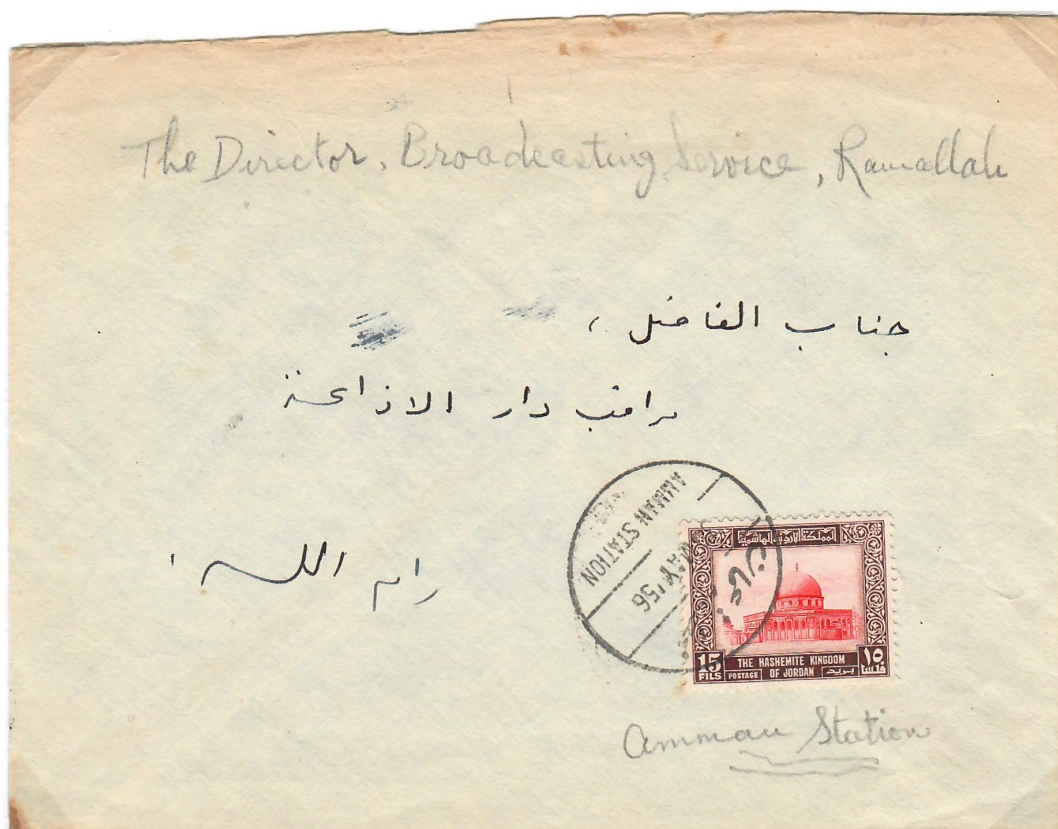 The Director, Broadcasting Service, Ramallah
جناب الفاضل ،
مراقب دار الاذاعة
رام الله ،
AMMAN STATION
MAY '56
عمان
المملكة الاردنية الهاشمية
15 FILS
THE HASHEMITE KINGDOM OF JORDAN
POSTAGE
بريد
١٥ فلسا
Amman Station